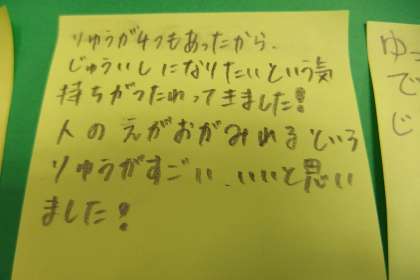 りゅうが4つもあったから、
じゅういしになりたいという気
持ちがつたわってきました!
人のえがおがみれるという
りゅうがすごい、いいと思い
ました!
ゆ
で
じ